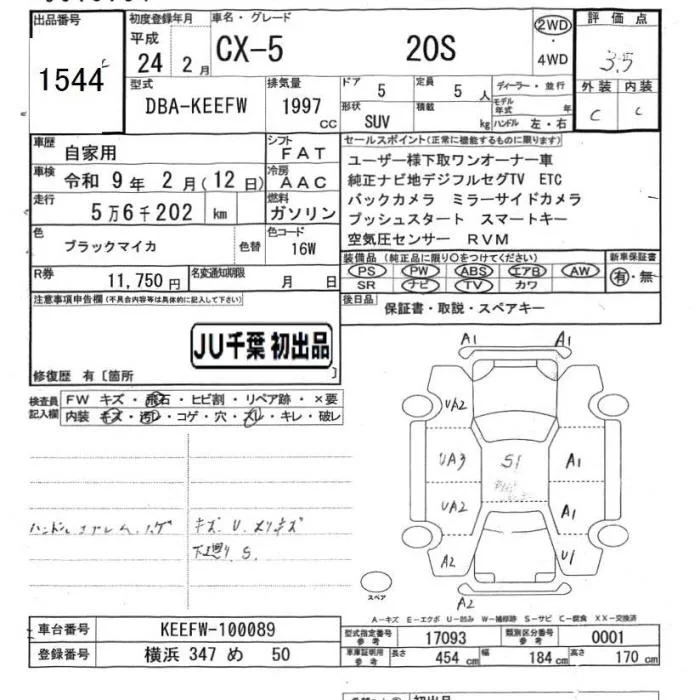 出品番号 初度登録年月 車名・グレード 2WD 評価点
平成 CX-5 20S ・ 3.5
1544 24 2月 4WD
型式 排気量 ドア 定員 ディーラー・並行 外装 内装
DBA-KEEFW 1997 cc 5 5人 モデル年式 年 C C
形状 SUV 積載 kg ハンドル 左・右
車歴 自家用 シフト FAT セールスポイント(正常に機能するものに限ります)
車検 令和 9年 2月(12日) 冷房 AAC ユーザー様下取ワンオーナー車
走行 5万6千202 km 燃料 ガソリン 純正ナビ地デジフルセグTV ETC
バックカメラ ミラーサイドカメラ
色 ブラックマイカ 色替 色コード 16W プッシュスタート スマートキー
空気圧センサー RVM
R券 11,750円 名変通知期限 月 日 装備品(純正品に限り○をつけてください) 新車保証書
PS PW ABS エアB AW 有・無
SR ナビ TV カワ
注意事項申告欄(不具合内容等は具体的に記入して下さい) 後日品 保証書・取説・スペアキー
JU千葉 初出品
修復歴 有〔箇所 〕
検査員記入欄 FW キズ・飛石・ヒビ割・リペア跡・×要
内装 キズ・汚レ・コゲ・穴・スレ・キレ・破レ
A1 A1
UA2
UA3 S1 A1
UA2 A1
A2 U1
A2
キズ. U. メリキズ
下廻り S.
スペア
A-キズ E-エクボ U-凹み W-補修跡 S-サビ C-腐食 XX-交換済
車台番号 KEEFW-100089 型式指定番号参考 17093 類別区分番号参考 0001
登録番号 横浜 347 め 50 車庫証明用参考 長さ 454 cm 幅 184 cm 高さ 170 cm
初出品